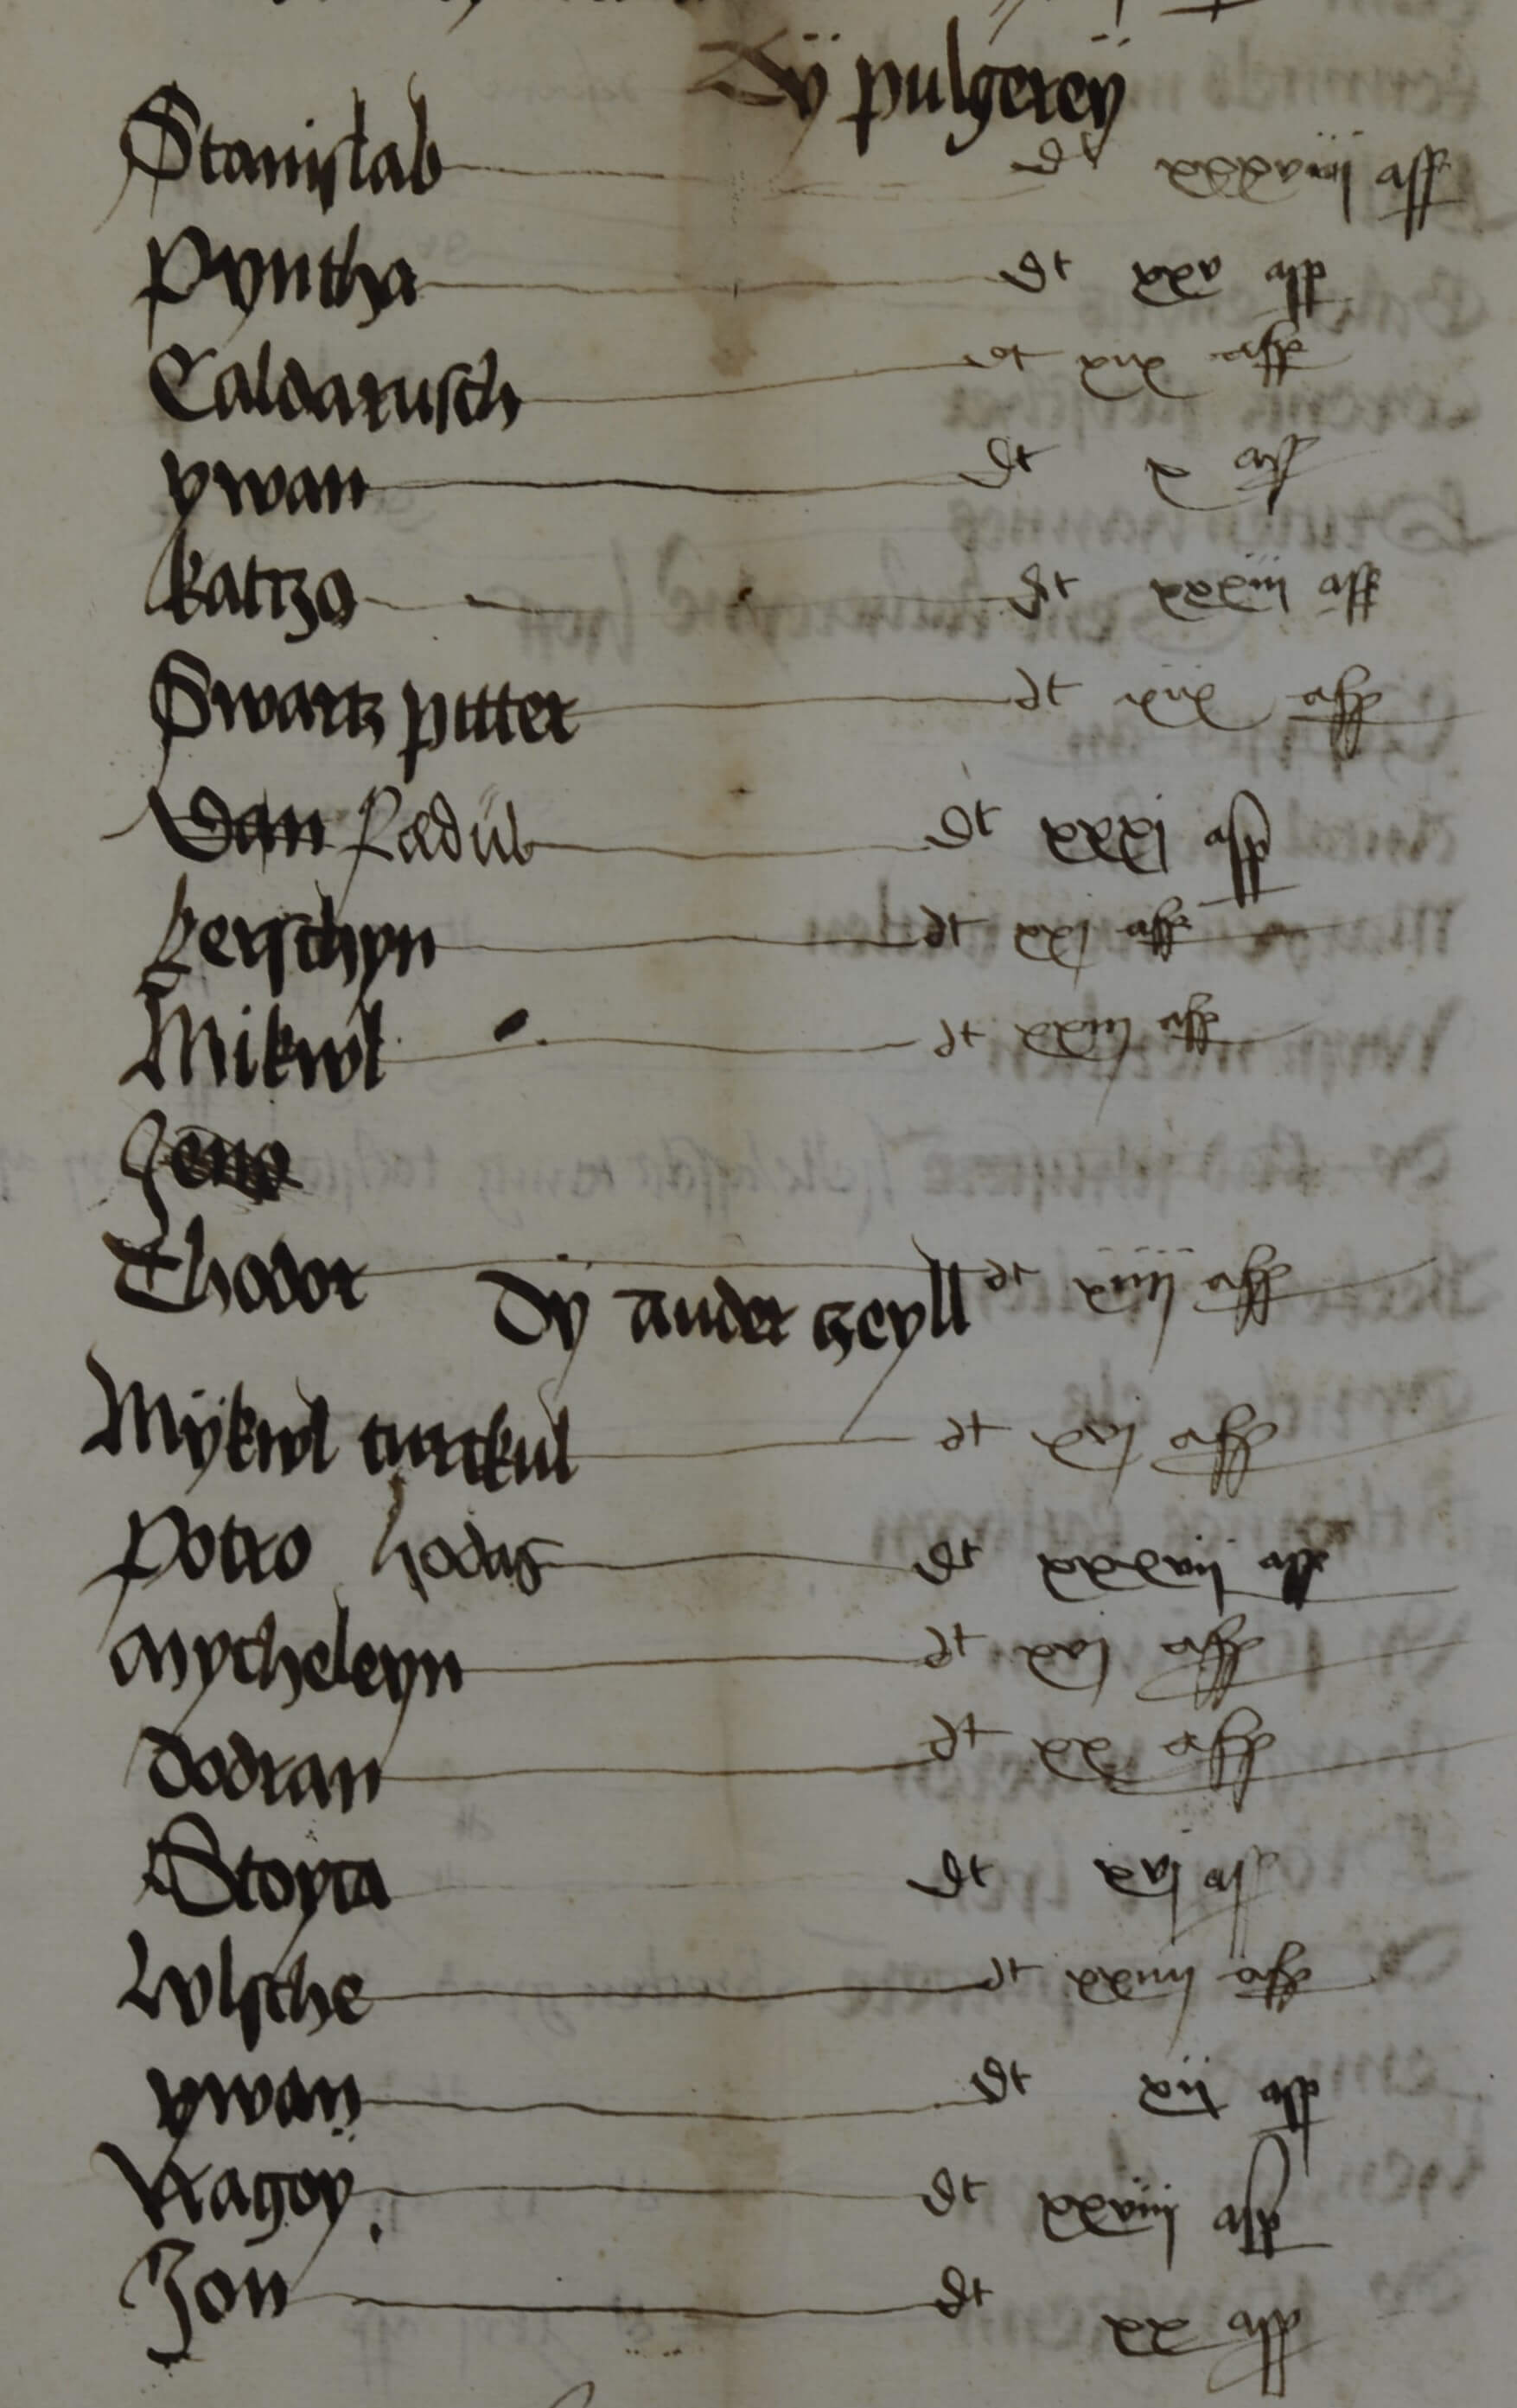 Dÿ pulgereÿ
Stanislab dt xxxviiij asp
Pyntha dt xxv asp
Caldarusch dt xix asp
ywan dt x asp
katrzo dt xxxiij asp
Swartz pitter dt xix asp
Dan Radūl dt xxxj asp
kerschyn dt xxj asp
Mikwl dt xxiij asp
Thodor dt xiiij asp
Dÿ ander zeyll
Mÿkwl turckul dt xxj asp
Potro hodas dt xxxvij asp
Mycheleyn dt xxj asp
dodran dt xx asp
Stoyca dt xvj asp
Wlsche dt xxiiij asp
ywan dt xij asp
Ragoÿ dt xxviij asp
Jon dt xx asp